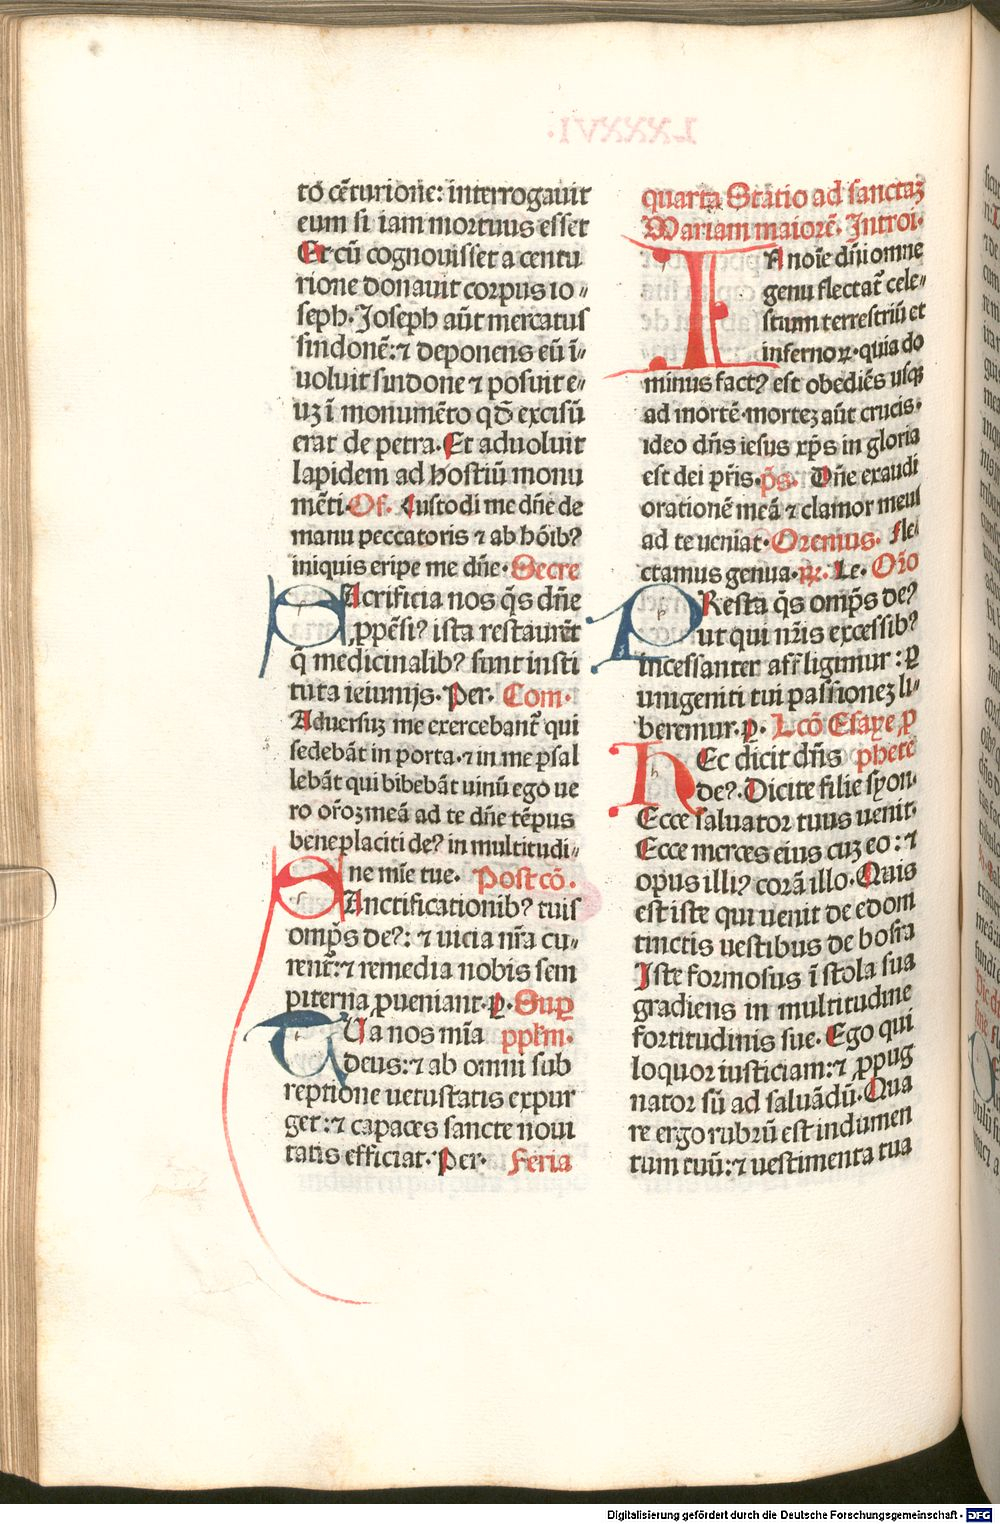 LXXXVI.
to cēturione: interrogauit
eum si iam mortuus esset
Et cū cognouisset a centu
rione donauit corpus io„
seph. Joseph aūt mercatus
sindonē: ⁊ deponens eū ī„
uoluit sindone ⁊ posuit e„
uꝫ ī monumēto qđ excisū
erat de petra. Et aduoluit
lapidem ad hostiū monu
mēti. Of. Custodi me dn̄e de
manu peccatoris ⁊ ab hoīibꝰ
iniquis eripe me dn̄e. Secre
SAcrificia nos q̄s dn̄e
ꝓpēsiꝰ ista restaurēt
q̄ medicinalibꝰ sunt insti
tuta ieiunijs. Per. Com.
Aduersuꝫ me exercebant̄ qui
sedebāt in porta. ⁊ in me psal
lebāt qui bibebāt uinū ego ue
ro or̄oꝫ meā ad te dn̄e tēpus
beneplaciti deꝰ in multitudi„
ne mīe tue. Postcō.
SAnctificationibꝰ tuis
omp̄s deꝰ: ⁊ uicia nr̄a cu„
rent̄: ⁊ remedia nobis sem
piterna ꝓueniant. ꝑ. Suꝑ
TUa nos mīa pplm̄.
deus: ⁊ ab omni sub
reptione uetustatis expur
get: ⁊ capaces sancte noui
tatis efficiat. Per. Feria
quarta Statio ad sanctaꝫ
Mariam maiorē. Introi.
IN noīe dn̄i omne
genu flectat̄ cele„
stium terrestriū et
infernoꝝ. quia do
minus factꝰ est obediēs usqꝫ
ad mortē. morteꝫ aūt crucis.
ideo dn̄s iesus xp̄s in gloria
est dei pr̄is. p̄s. Dn̄e exaudi
orationē meā ⁊ clamor meus
ad te ueniat. Oremus. Fle
ctamus genua. ꝶ. Le. Or̄o
PResta q̄s omp̄s deꝰ
ut qui nr̄is excessibꝰ
incessanter affligimur: ꝑ
unigeniti tui passioneꝫ li„
beremur. ꝑ. Lcō Esaye ꝓ
HEc dicit dn̄s phete
deꝰ. Dicite filie syon.
Ecce saluator tuus uenit.
Ecce merces eius cuꝫ eo: ⁊
opus illiꝰ corā illo. Quis
est iste qui uenit de edom
tinctis uestibus de bosra
Iste formosus ī stola sua
gradiens in multitudine
fortitudinis sue. Ego qui
loquor iusticiam: ⁊ ꝓpug
nator sū ad saluādū. Qua
re ergo rubrū est indumen
tum tuū: ⁊ uestimenta tua
Digitalisierung gefördert durch die Deutsche Forschungsgemeinschaft - DFG